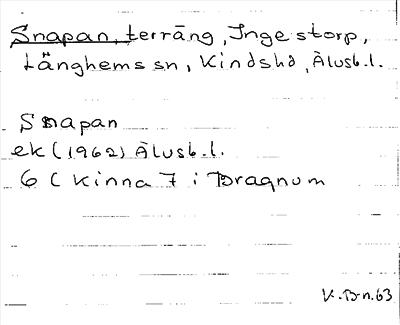 Snapan, terräng, Ingestorp,
Länghems sn, Kindshd, Älvsb.l.
Snapan
ek (1962) Älvsb.l.
6 C Kinna 7 i Dragnum
V.D-n.63